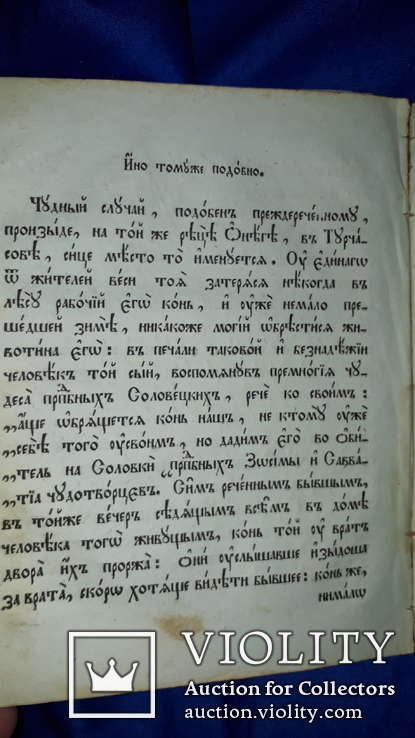 И҆́но томꙋ́же подо́бно.
Чꙋ́дный слꙋ́чай, подо́бенъ преждерече́нномꙋ,
произы́де, на то́й же рѣцѣ̀ Ѻ҆не́гѣ, въ Тꙋрча́-
совѣ, си́це мѣ́сто то̀ и҆менꙋ́ется. Оу҆ є҆ди́нагѡ
ѿ жи́телей ве́си тоя̀ затеря́ся нѣ́когда въ
лѣ́сꙋ рабо́чїй є҆гѡ̀ ко́нь, и҆ оу҆жѐ нема́ло пре-
ше́дшей зимѣ̀, ника́коже могі́й ѡ҆брѣсти́ся жи-
воти́на є҆гѡ̀: въ печа́ли таково́й и҆ безнаде́жїи
человѣ́къ то́й сы́й, воспомянꙋ́въ премнѡ́гїя чꙋ-
деса̀ прпⷣбныхъ Солове́цкихъ, речѐ ко свои̑мъ:
„а҆́ще ѡ҆бря́щется ко́нь на́шъ, не ктомꙋ̀ оу҆жѐ
„себѣ̀ того̀ оу҆сво́имъ, но дади́мъ є҆го̀ во ѻ҆би́-
„тель на Соловкѝ прпⷣбныхъ Зѡси́мы и҆ Савва́-
„тїа чꙋдотво́рцєвъ. Си̑мъ рече́ннымъ бы́вшымъ,
въ то́йже ве́черъ сѣдя́щымъ всѣ̑мъ въ до́мѣ
человѣ́ка тогѡ̀ живꙋ́щымъ, ко́нь то́й оу҆ вра́тъ
двора̀ и҆́хъ проржа̀: ѻ҆ни́ оу҆слы́шавше и҆зыдо́ша
за врата̀, ско́рѡ хотя́ще ви́дѣти бы́вшее: ко́нь же,
нима́лѡ
VIOLITY
Auction for Collectors
auction.violity.com